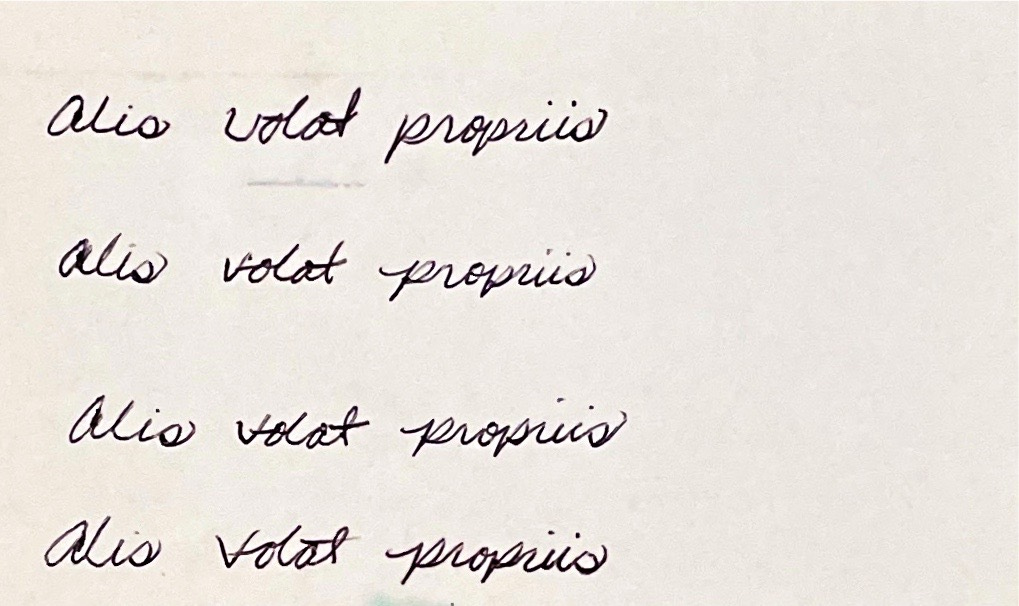 Alis volat propriis
Alis volat propriis
Alis volat propriis
Alis volat propriis